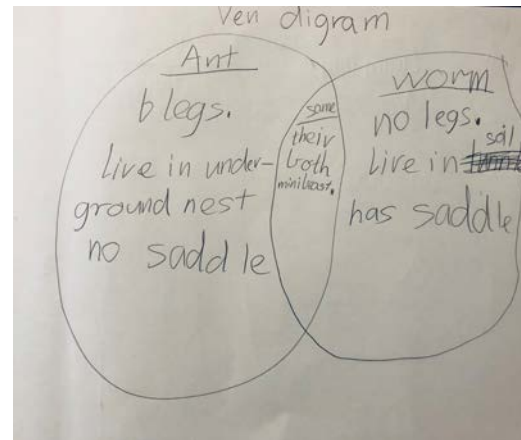 Ven digram
Ant
6 legs.
live in under-
ground nest
no saddle
same
their
both
minibeast.
worm
no legs.
soil
Live in
has saddle